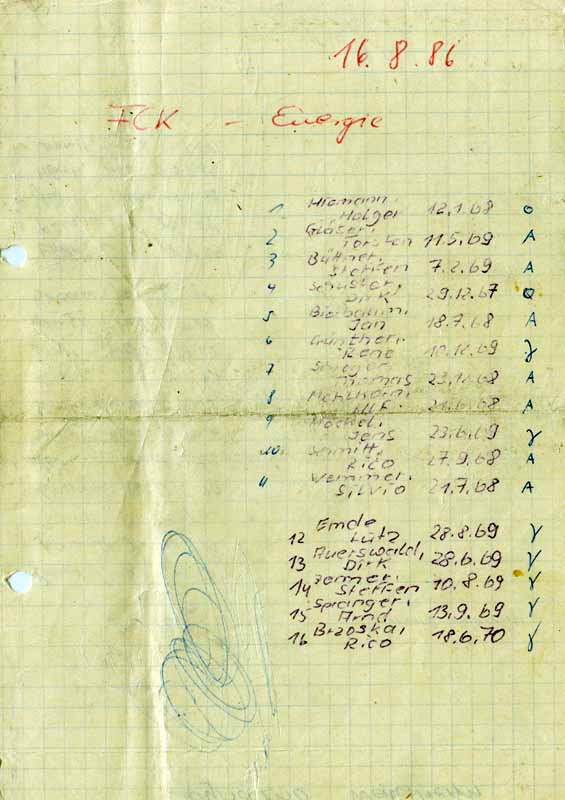 16.8.86
FCK - Energie
1 Hiemann,
Holger 12.1.68 O
2 Gläser,
Torsten 11.5.69 A
3 Büttner,
Steffen 7.2.69 A
4 Schuster,
Dirk 29.12.67 O
5 Bierbaum,
Jan 18.7.68 A
6 Günther,
Rene 10.12.69 γ
7
Thomas A
8
Ulf A
9
Jens 23.6.69 γ
10. Schmitt,
Rico 27.9.68 A
11 Wemmer,
Silvio 21.7.68 A
Emde
12 Lutz 28.8.69 γ
Auerswald,
13 Dirk 28.6.69 γ
14 Steffen 10.8.69 γ
Spranger,
15 Arnd 13.9.69 γ
16 Brzoska,
Rico 18.6.70 γ